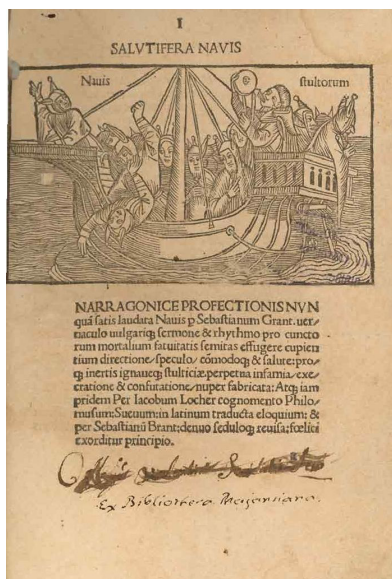 I
SALVTIFERA NAVIS
Nauis stultorum
NARRAGONICE PROFECTIONIS NVN
quã satis laudata Nauis p Sebastianum Grant. uer⸗
naculo uulgariq; sermone & rhythmo pro cuncto
rum mortalium fatuitatis semitas effugere cupien
tium directione, speculo, cõmodoq; & salute: pro⸗
q; inertis ignaueq; stulticiæ perpetua infamia, exe⸗
cratione & confutatione, nuper fabricata: Atq; iam
pridem Per Iacobum Locher cognomento Philo⸗
musum: Sueuum: in latinum traducta eloquium: &
per Sebastianũ Brant: denuo seduloq; reuisa: fœlici
exorditur principio.
Ex Bibliotheca Mazariniana.